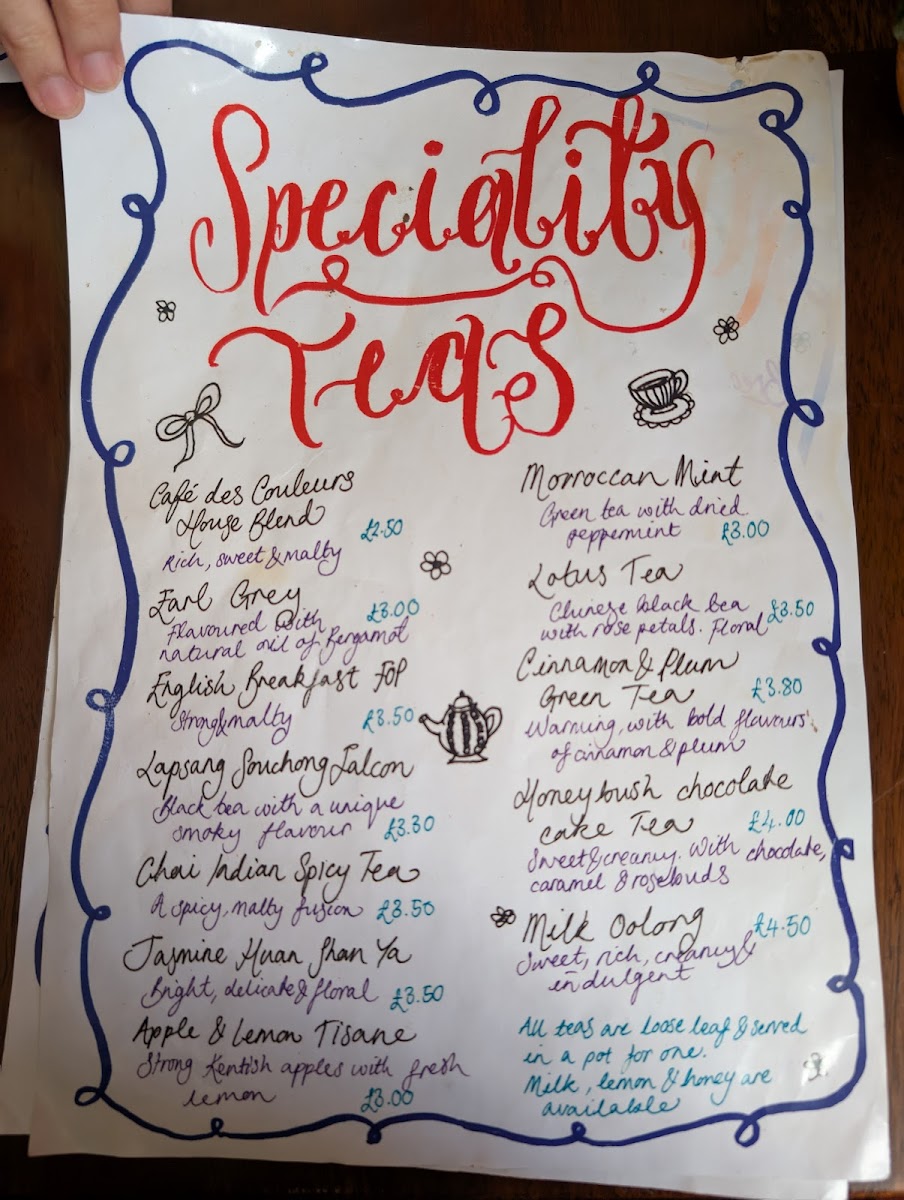 Speciality
Teas
Café des Couleurs
House Blend
£2.50
Rich, sweet & malty
Earl Grey
£3.00
Flavoured with
natural oil of Bergamot
English Breakfast FOP
Strong & malty
£3.50
Lapsang Souchong Falcon
Black tea with a unique
smoky flavour £3.30
Chai Indian Spicy Tea
A spicy, malty fusion £3.50
Jasmine Huan Shan Ya
Bright, delicate & floral £3.50
Apple & Lemon Tisane
Strong Kentish apples with fresh
lemon £3.00
Morroccan Mint
Green tea with dried
peppermint £3.00
Lotus Tea
Chinese black tea £3.50
with rose petals. Floral
Cinnamon & Plum
Green Tea £3.80
Warming, with bold flavours
of cinnamon & plum
Honeybush chocolate
cake Tea £4.00
Sweet & creamy. With chocolate,
caramel & rosebuds
Milk Oolong £4.50
Sweet, rich, creamy &
indulgent
All teas are loose leaf & served
in a pot for one.
Milk, lemon & honey are
available